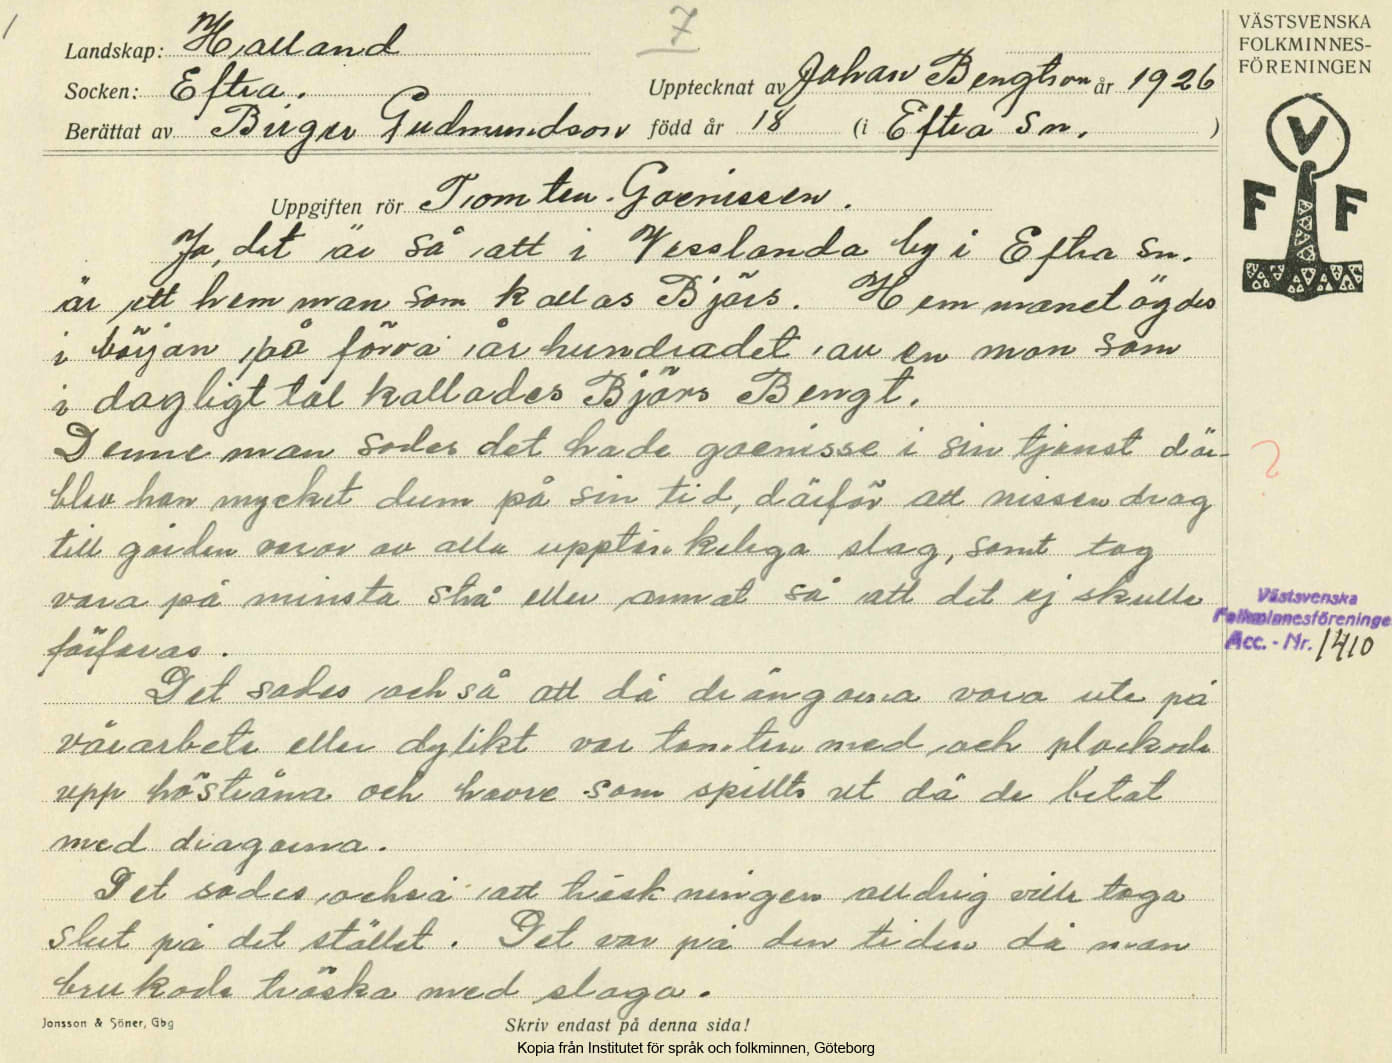 7
Landskap: Halland
Socken: Eftra. Upptecknat av Johan Bengtson år 1926
Berättat av Birger Gudmundson född år 18 (i Eftra Sn. )
Uppgiften rör Tomten. Goenissen.
Ja, det är så att i Vesslanda by i Eftra Sn.
är ett hemman som kallas Björs. Hemmanet ägdes
i början på förra århundradet av en man som
i dagligt tal kallades Björs Bengt.
Denne man sades det hade goenisse i sin tjenst där-
blev han mycket dum på sin tid, därför att nissen drog
till gården varor av alla upptänkeliga slag, samt tog
vara på minsta strå eller annat så att det ej skulle
förfaras.
Det sades också att då drängarna voro ute på
vårarbete eller dylikt var tomten med och plockade
upp höstråna och havre som spillts ut då de betat
med dragarna.
Det sades också att tröskningen alldrig ville taga
slut på det stället. Det var på den tiden då man
brukade tröska med slaga.
VÄSTSVENSKA
FOLKMINNES-
FÖRENINGEN
V
F F
Västsvenska
Folkminnesföreninge
Acc. - Nr. 1410
Jonsson & Söner, Gbg
Skriv endast på denna sida!
Kopia från Institutet för språk och folkminnen, Göteborg